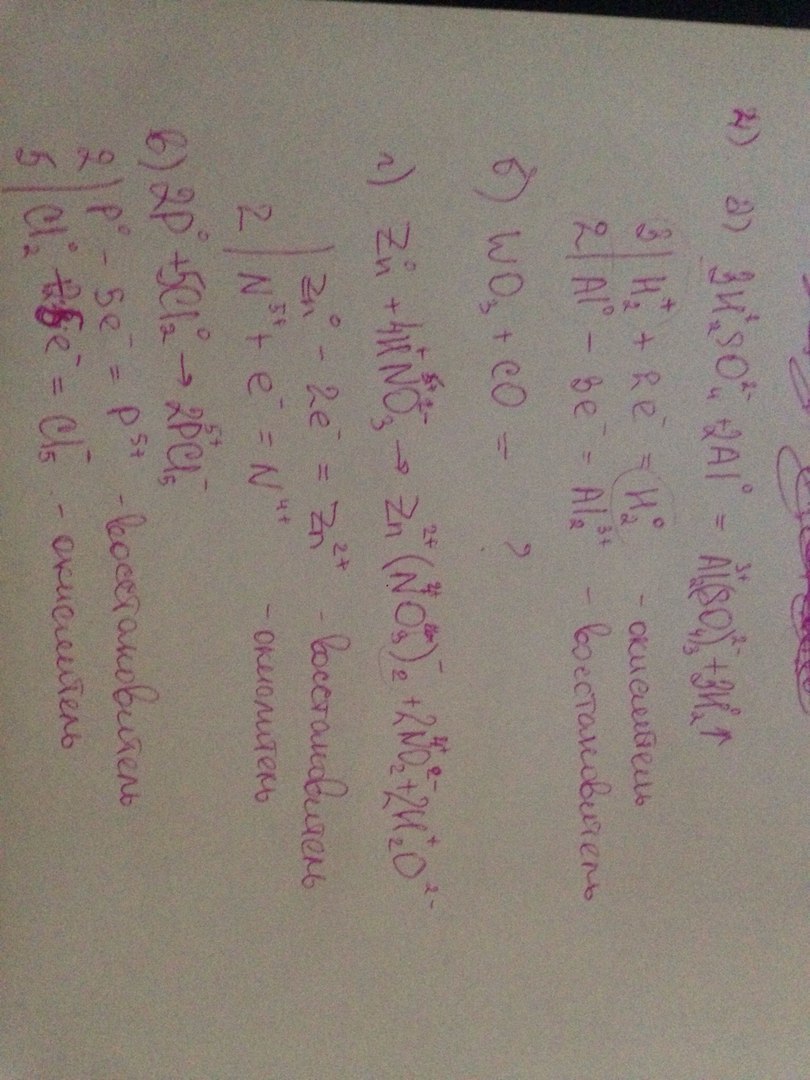 2) а) 3H₂⁺SO₄²⁻ + 2Al⁰ = Al₂³⁺(SO₄)₃²⁻ + 3H₂↑
3 | H₂⁺ + 2e⁻ = H₂⁰ - окислитель
2 | Al⁰ - 3e⁻ = Al₂³⁺ - восстановитель
б) WO₃ + CO = ?
г) Zn⁰ + 4H⁺N⁵⁺O₃²⁻ → Zn²⁺(NO₃)₂⁻ + 2N⁴⁺O₂²⁻ + 2H₂⁺O²⁻
Zn⁰ - 2e⁻ = Zn²⁺ - восстановитель
2 | N⁵⁺ + e⁻ = N⁴⁺ - окислитель
в) 2P⁰ + 5Cl₂⁰ → 2P⁵⁺Cl₅⁻
2 | P⁰ - 5e⁻ = P⁵⁺ - восстановитель
5 | Cl₂⁰ e⁻ = Cl₅⁻ - окислитель